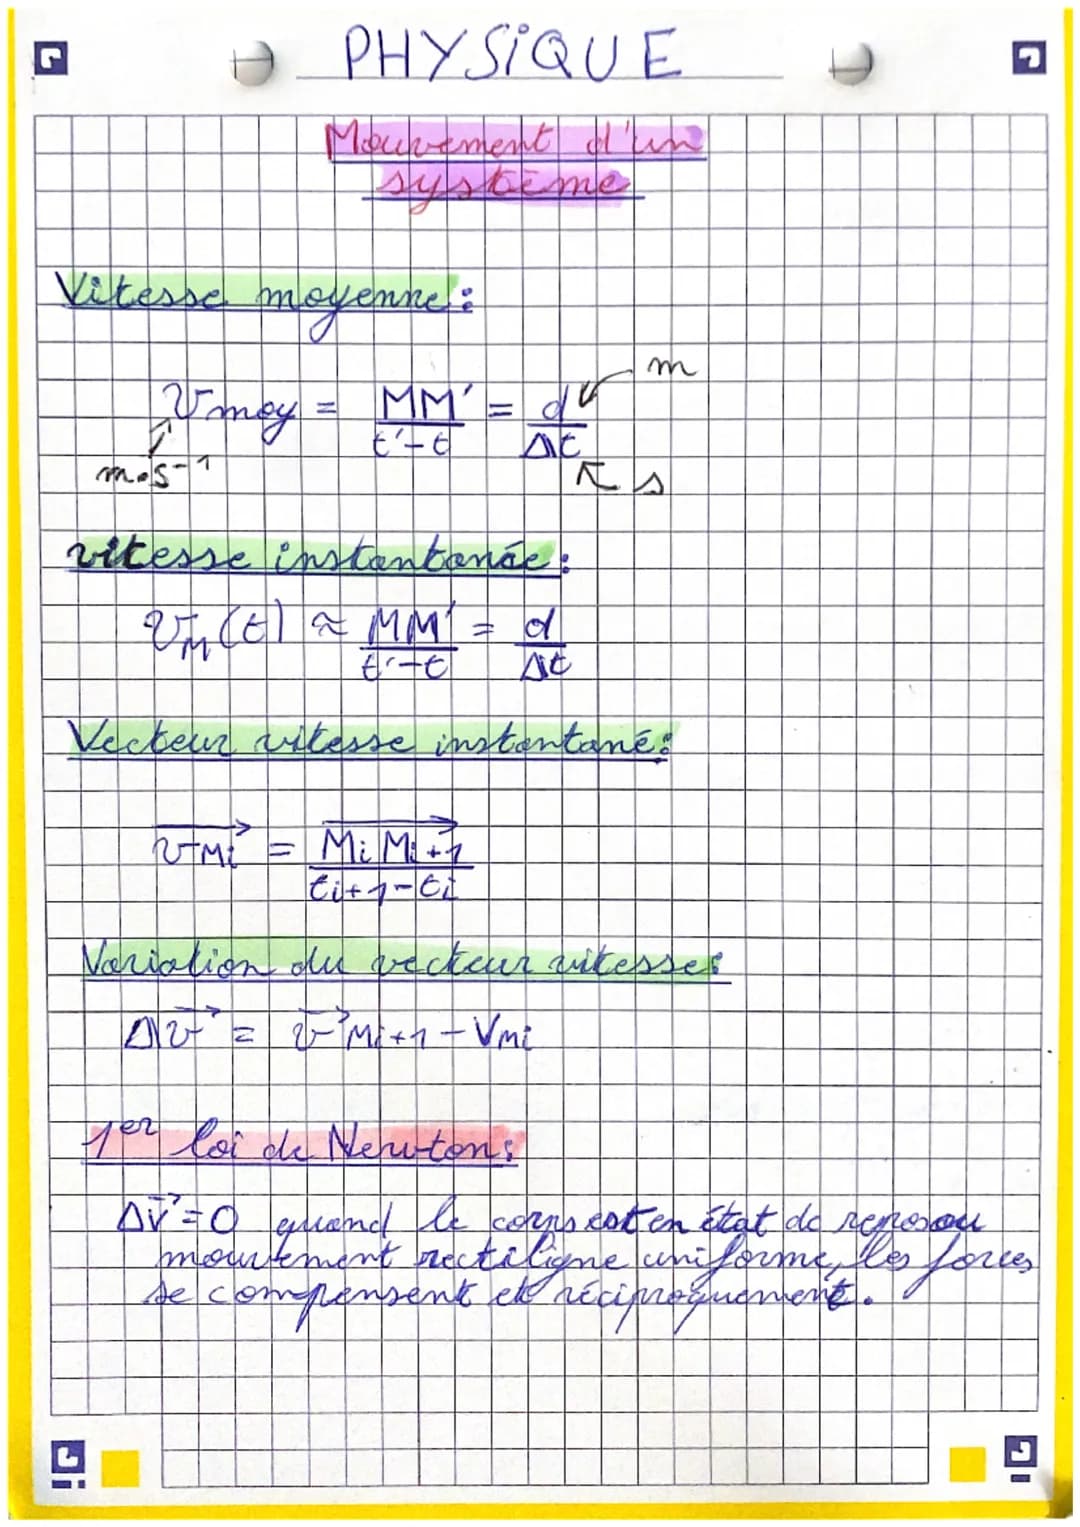 PHYSiQUE
Mouvement d'un
système
Vitesse moyenne :
m
Vmoy = MM' / t'-t = d / Δt
m.s-1
s
vitesse instantanée :
VM(t) ≈ MM' / t'-t = d / Δt
Vecteur vitesse instantané :
→vMi = →MiMi+1 / ti+1-ti
Variation du vecteur vitesse :
Δ→v = →vMi+1 - VMi
1er loi de Newton :
Δ→v = 0 quand le corps est en état de repos ou
mouvement rectiligne uniforme, les forces
se compensent et réciproquement.